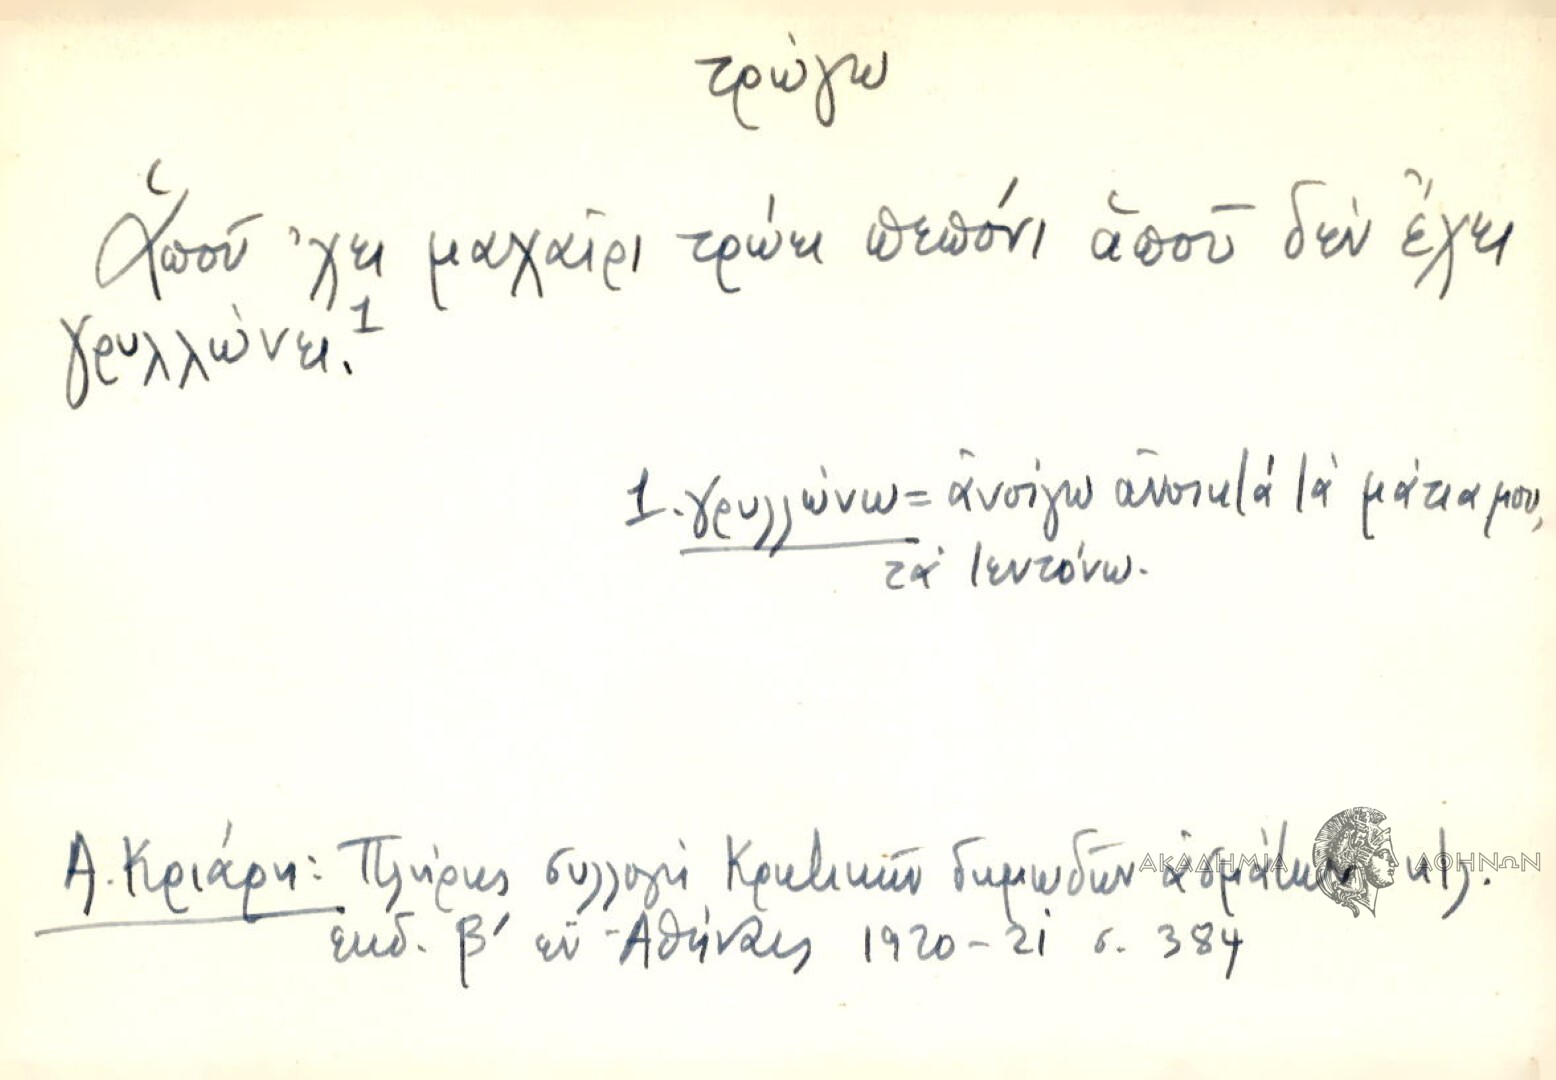 τρώγω
Ἁποῦ 'χει μαχαῖρι τρώει πεπόνι ἁποῦ δὲν ἔχει
γρυλλώνει.¹
1. γρυλλώνω = ἀνοίγω ἀνοικτά τά μάτια μου,
τά τεντώνω.
Α. Κριάρη: Πλήρης συλλογή Κρητικῶν δημωδῶν ἀσμάτων κτλ.
ἐκδ. β' ἐν Ἀθήναις 1920-21 σ. 384
ΑΚΑΔΗΜΙΑ ΑΘΗΝΩΝ